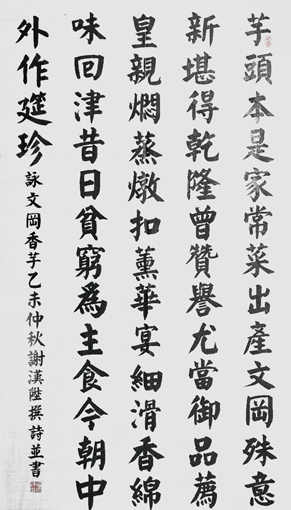 芋頭本是家常菜出產文岡殊意
新堪得乾隆曾贊譽尤當御品薦
皇親燜蒸燉扣薰華宴細滑香綿
味回津昔日貧窮為主食今朝中
外作筵珍
詠文岡香芋乙未仲秋謝漢陞撰詩並書